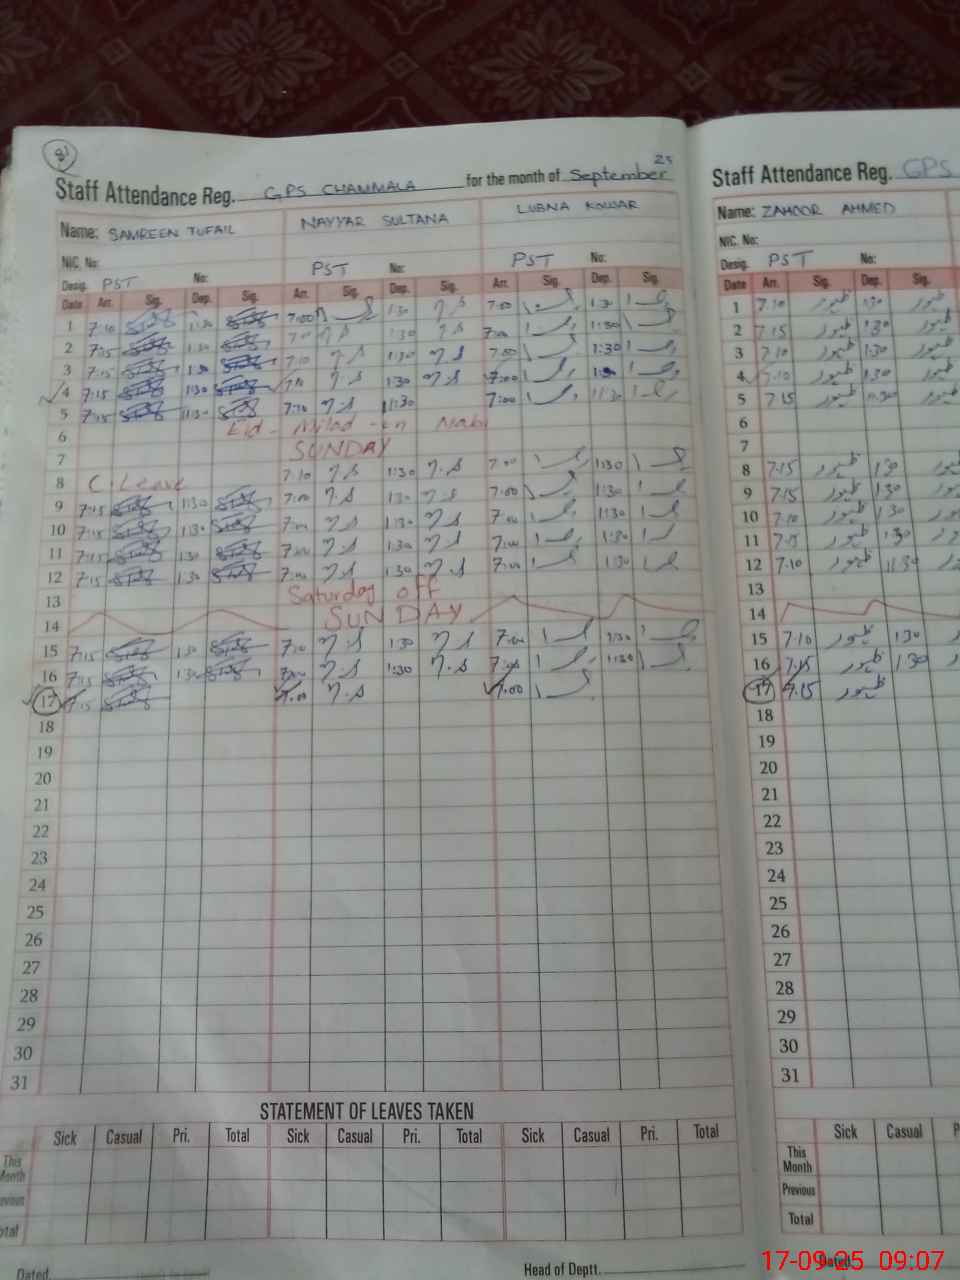 81
Staff Attendance Reg. GPS CHAMMALA for the month of September 25
Name: SAMREEN TUFAIL NAYYAR SULTANA LUBNA KOUSAR
NIC. No:
Desig. PST No: PST No: PST
Date Arr. Sig. Dep. Sig. Arr. Sig. Dep. Sig. Arr. Sig. Dep. Sig.
1 7:10 1:30 7:00 1:30 7.S 7:00 1:30
2 7:15 1:30 7.S 1:30 7.S 7:00 1:30
3 7:15 1:30 7:10 7.S 1:30 7.S 7:00 1:30
4 7:15 1:30 7.S 1:30 7.S 7:00
5 7:15 11:30 7:10 7.S 11:30 7:00 11:30
6 Eid - Milad - un Nabi
7 SUNDAY
8 C. Leave 7:10 7.S 1:30 7.S 7:00 1:30
9 7:15 1:30 7:00 7.S 1:30 7.S 7:00 1:30
10 7:15 1:30 7:00 7.S 1:30 7.S 7:00 1:30
11 7:15 1:30 7:00 7.S 1:30 7.S 7:00 1:30
12 7:15 1:30 7:00 7.S 1:30 7.S 7:00 1:30
13 Saturday off
14 SUNDAY
15 7:15 1:30 7:10 7.S 1:30 7.S 7:00 1:30
16 7:15 1:30 7:00 7.S 1:30 7.S 7:00 1:30
17 7:15 7:00 7.S 7:00
18
19
20
21
22
23
24
25
26
27
28
29
30
31
STATEMENT OF LEAVES TAKEN
Sick Casual Pri. Total Sick Casual Pri. Total Sick Casual Pri. Total
This Month
Previous
Total
Dated Head of Deptt.
Staff Attendance Reg. GPS
Name: ZAHOOR AHMED
NIC. No:
Desig. PST No:
Date Arr. Sig. Dep. Sig.
1 7:10 ظہور 1:30 ظہور
2 7:15 ظہور 1:30 ظہور
3 7:10 ظہور 1:30 ظہور
4 7:10 ظہور 1:30 ظہور
5 7:15 ظہور 11:30 ظہور
6
7
8 7:15 ظہور 1:30
9 7:15 ظہور 1:30
10 7:10 ظہور 1:30
11 7:15 ظہور 1:30
12 7:10 ظہور 11:30
13
14
15 7:10 ظہور 1:30
16 7:15 ظہور 1:30
17 7:15 ظہور
18
19
20
21
22
23
24
25
26
27
28
29
30
31
Sick Casual
This Month
Previous
Total
Dated
17-09-25 09:07